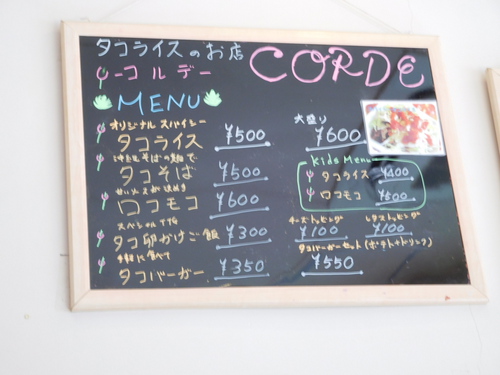 タコライスのお店 CORDE
コルデー
MENU
オリジナル スパイシー
タコライス ¥500
大盛り
¥600
沖縄そばの麺で
タコそば ¥500
ロコモコ ¥600
スペシャルTTG
タコ卵かけご飯 ¥300
手軽に食べて
タコバーガー ¥350
Kids Menu
タコライス ¥400
ロコモコ ¥500
チーズトッピング
¥100
レタストッピング
¥100
タコバーガーセット(ポテト+ドリンク)
¥550